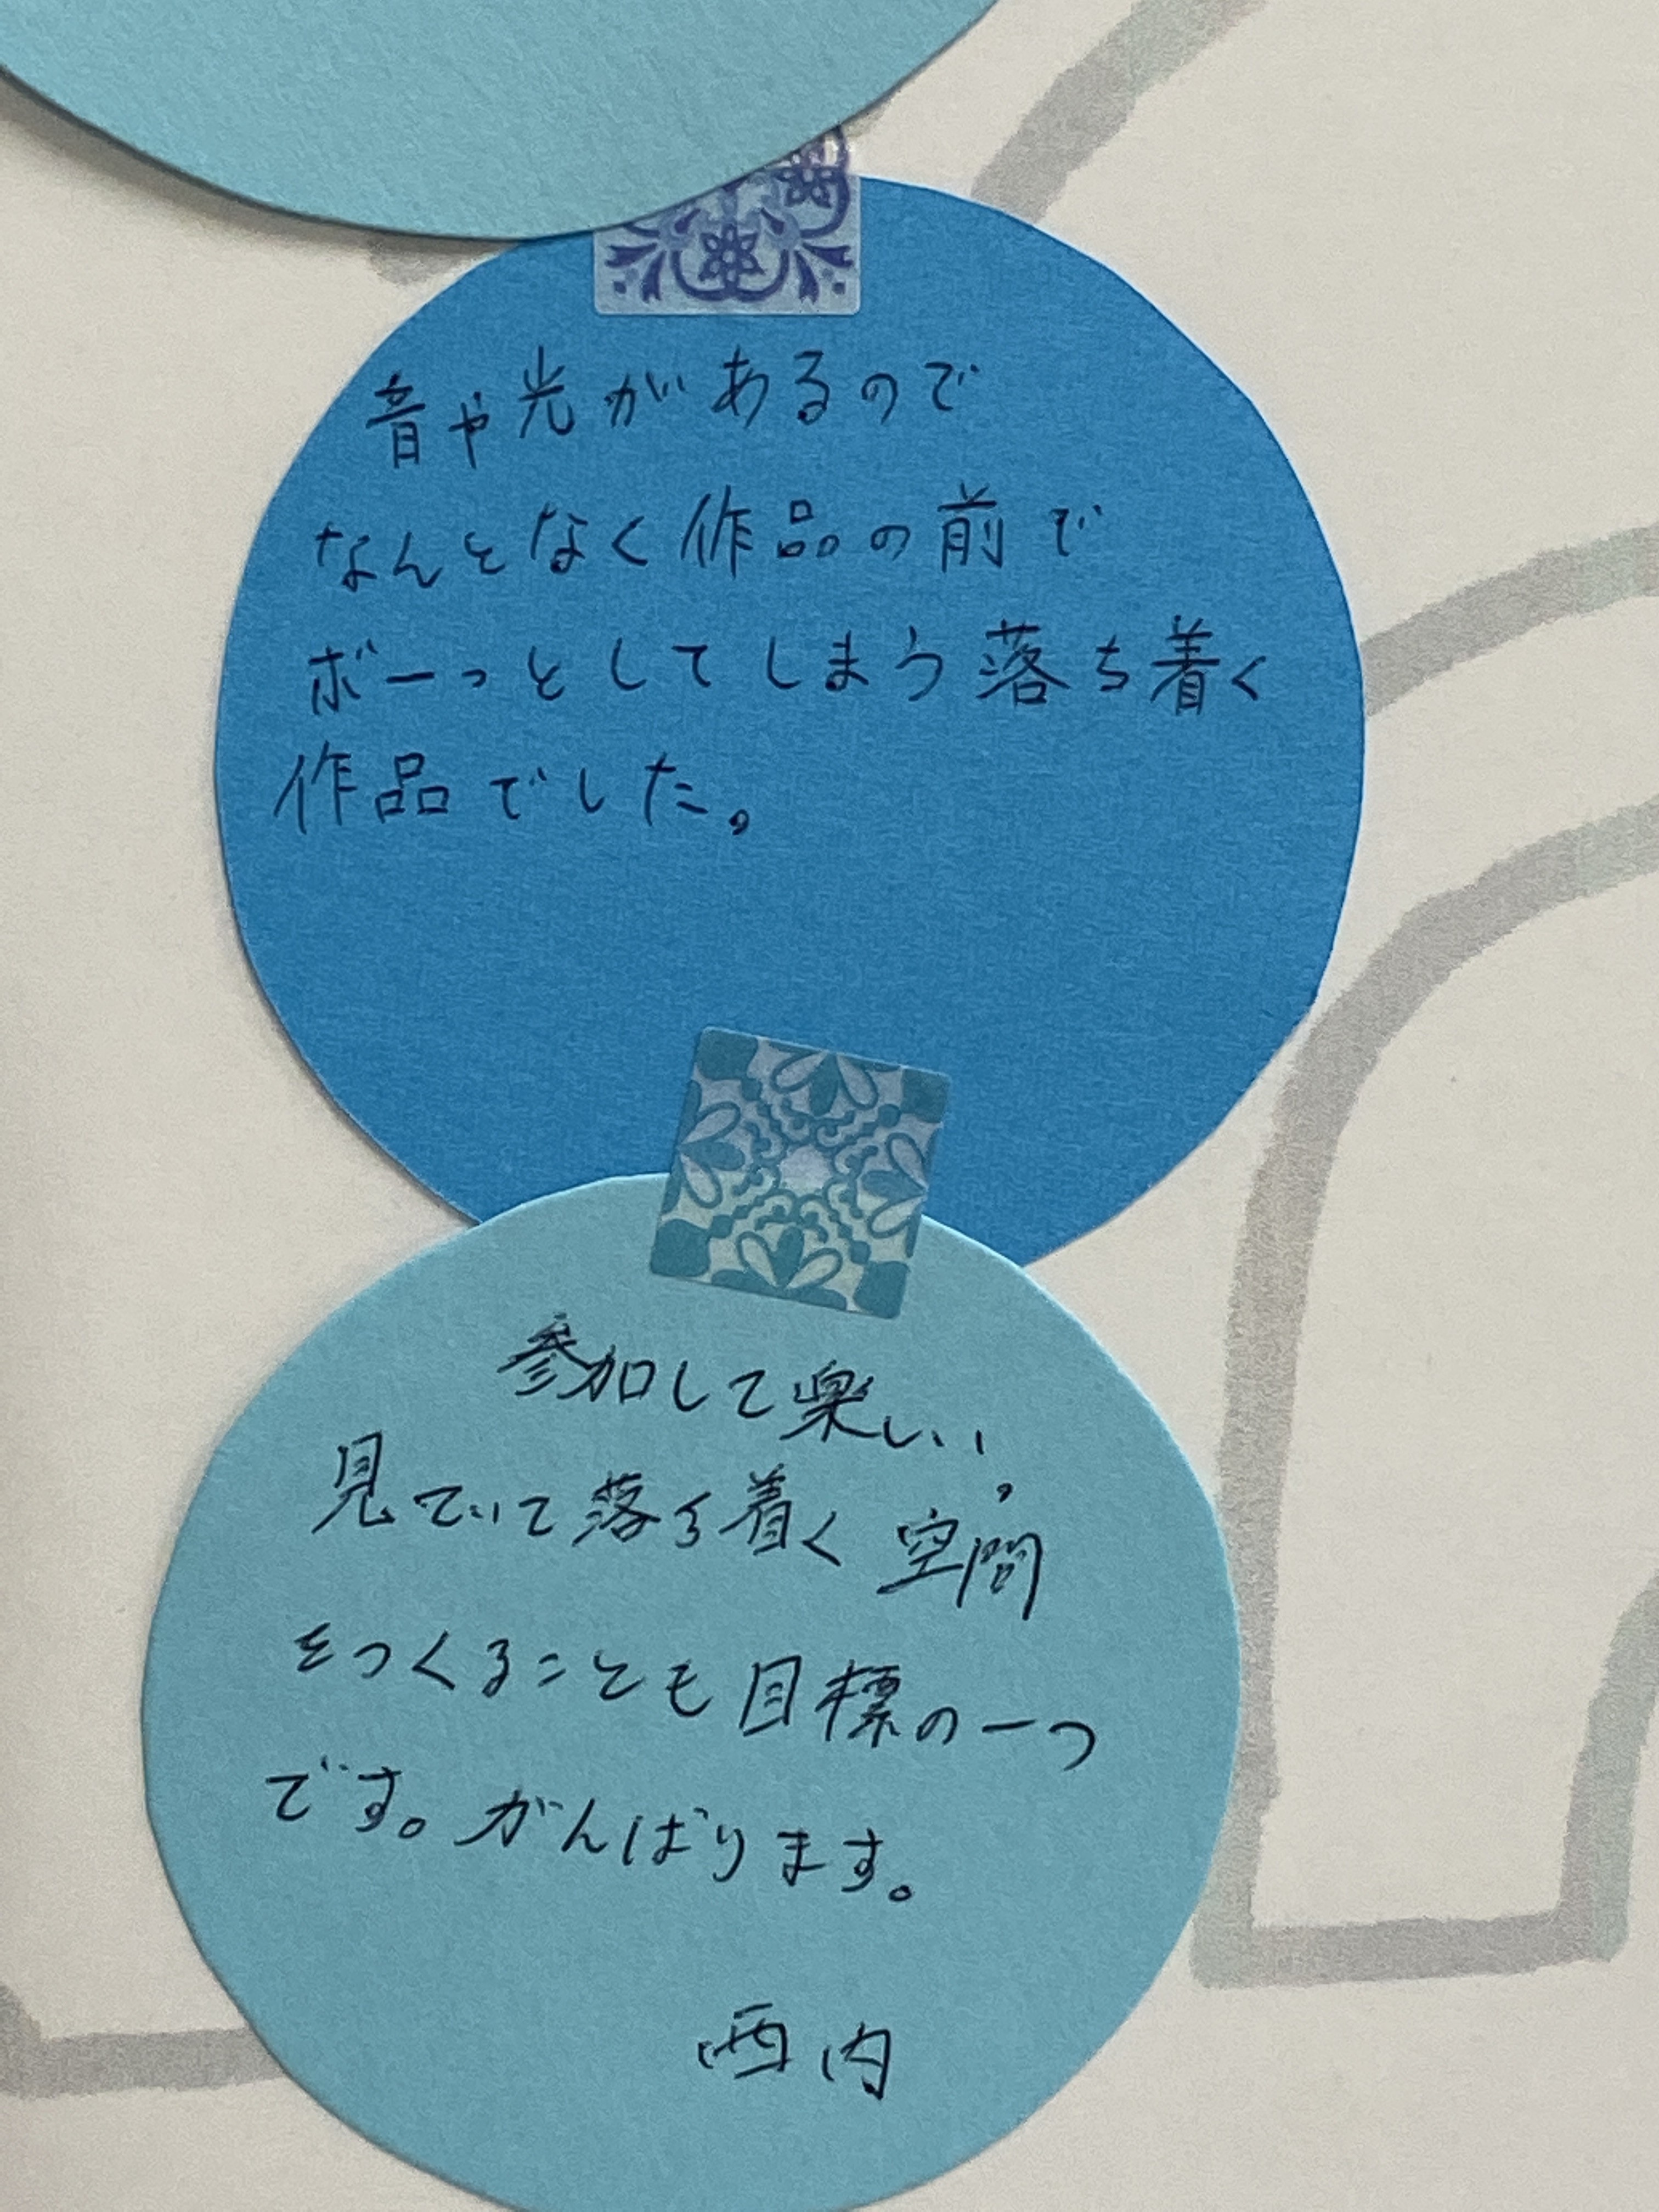 音や光があるので
なんとなく作品の前で
ボーっとしてしまう落ち着く
作品でした。
参加して楽しい、
見ていて落ち着く空間
をつくることも目標の一つ
です。がんばります。
西内